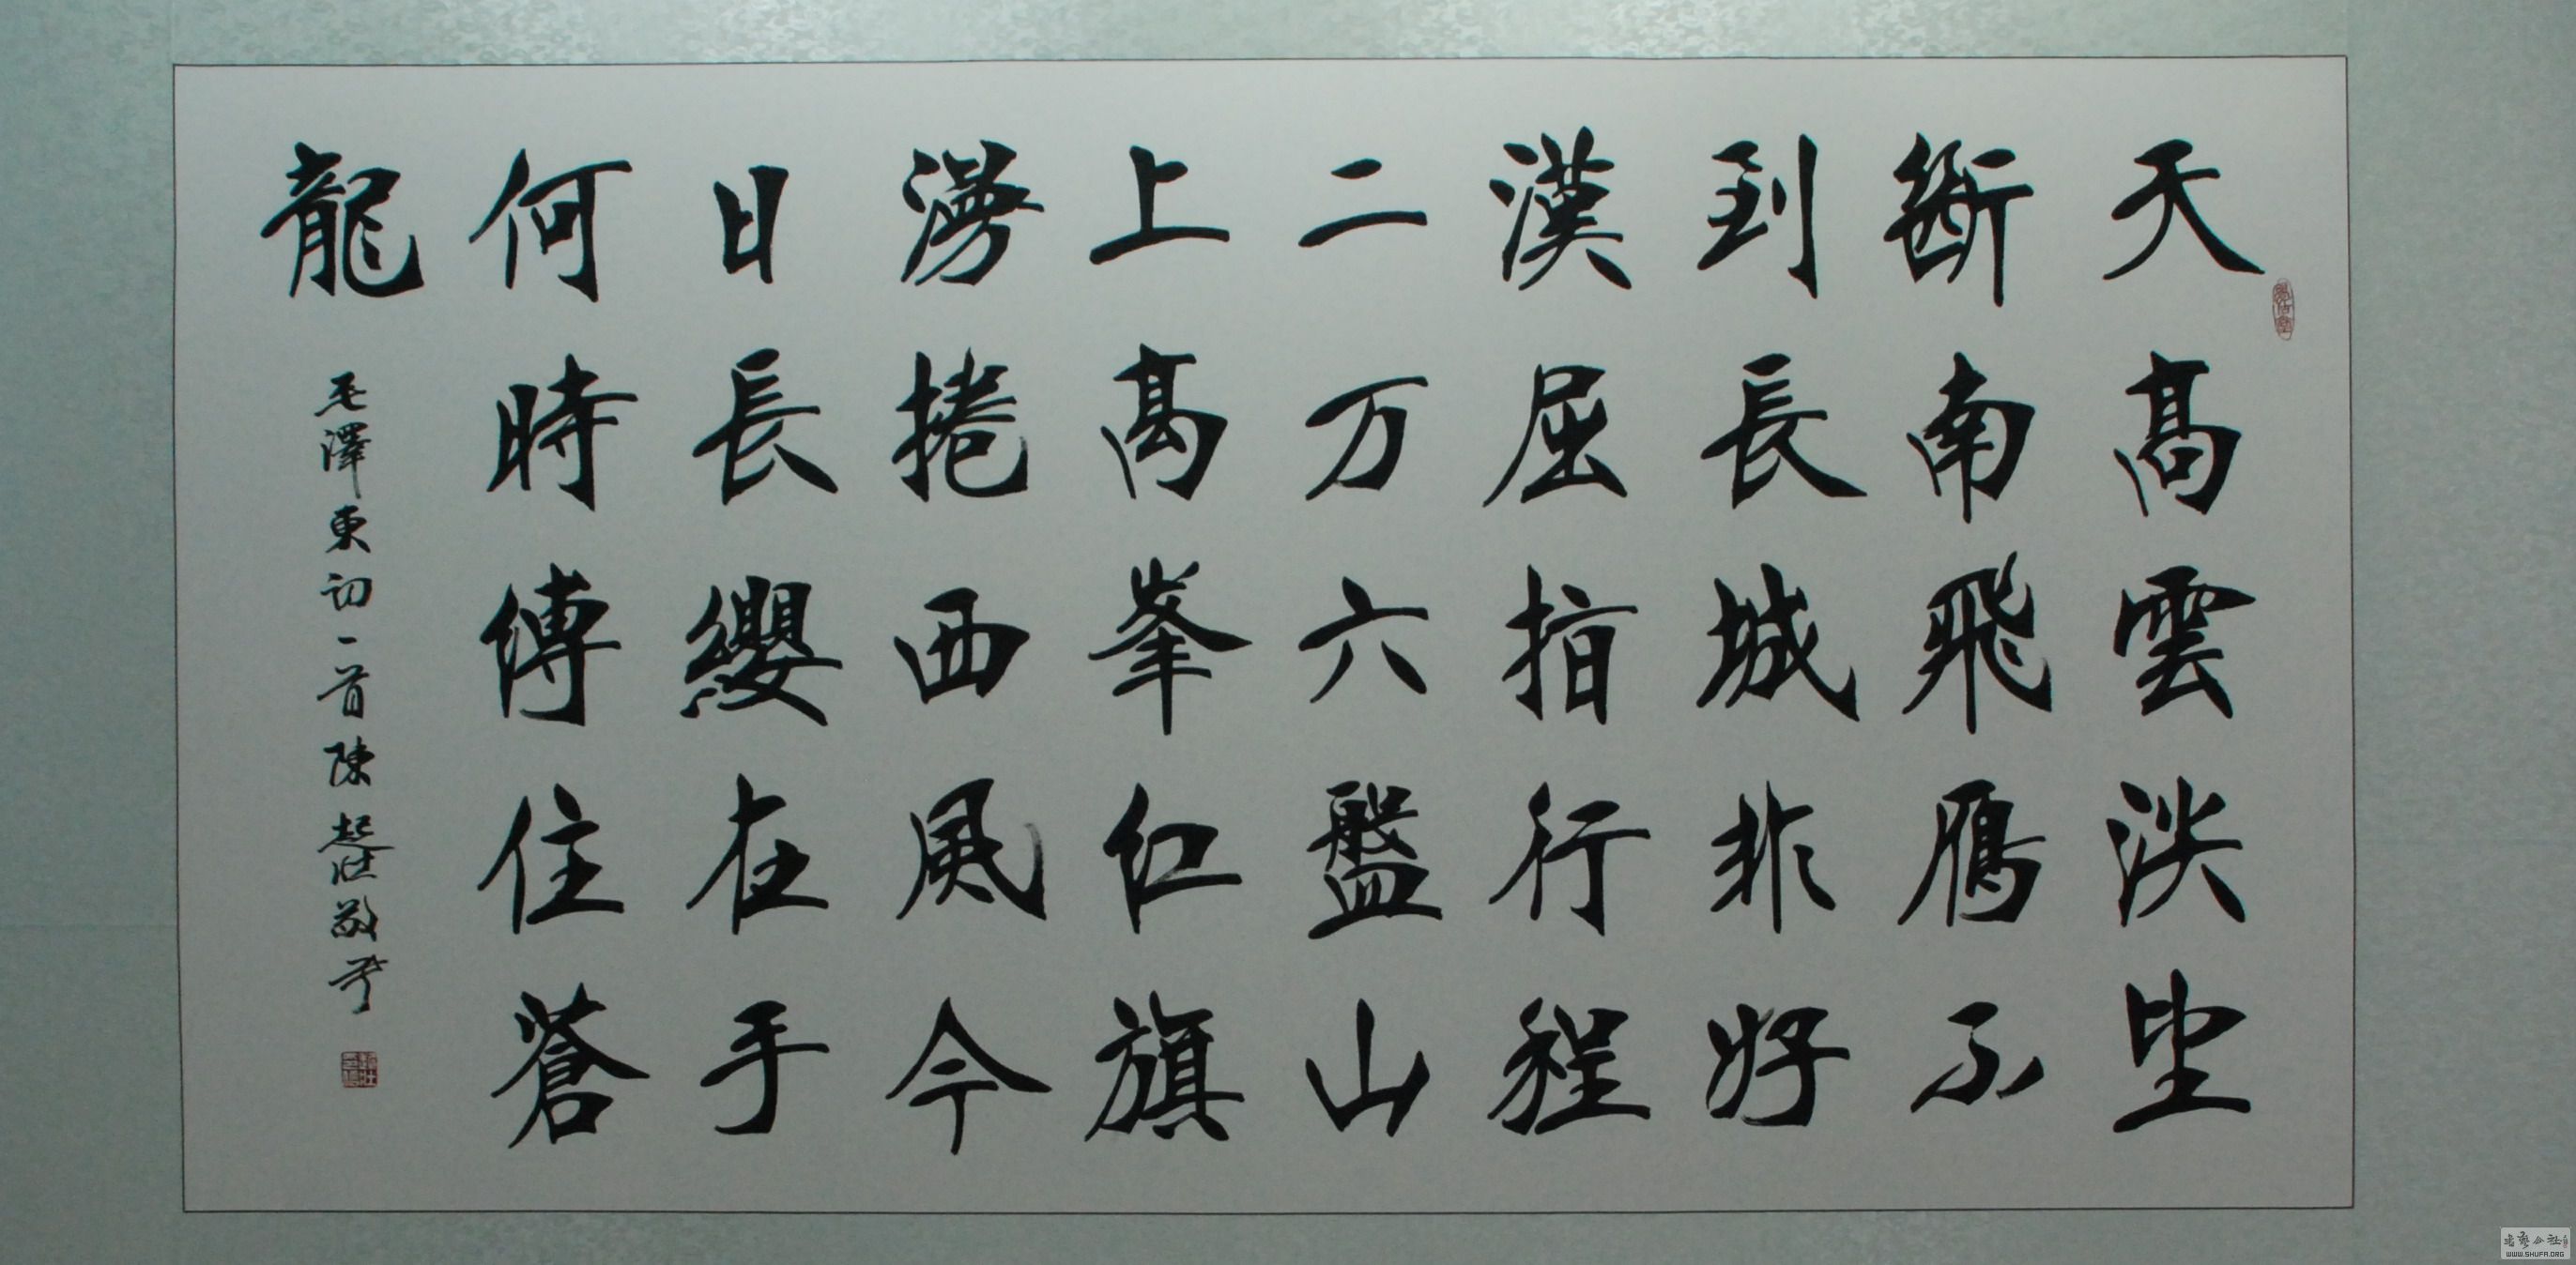 天高雲淡望
斷南飛雁不
到長城非好
漢屈指行程
二万六盤山
上高峯红旗
漫捲西風今
日長纓在手
何時縛住蒼
龍
毛澤東词一首陳起壯敬书
WWW.SHUFA.ORG